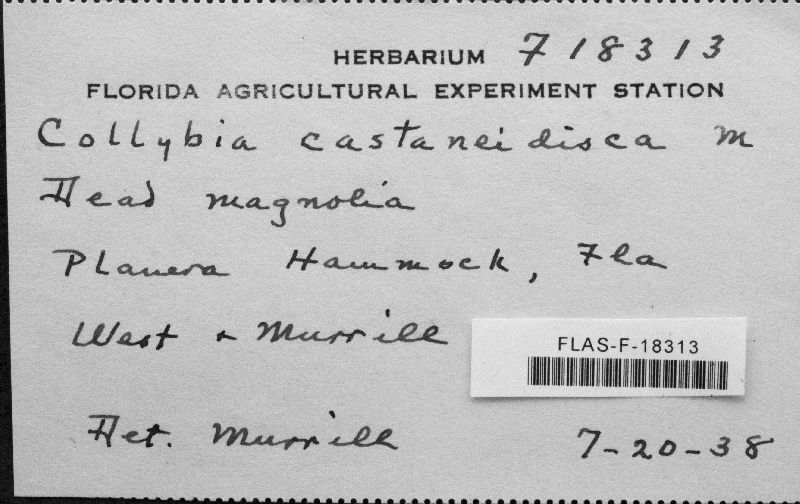 HERBARIUM F 18313
FLORIDA AGRICULTURAL EXPERIMENT STATION
Collybia castaneidisca M
Dead magnolia
Planera Hammock, Fla
West & Murrill
FLAS-F-18313
Det. Murrill 7-20-38